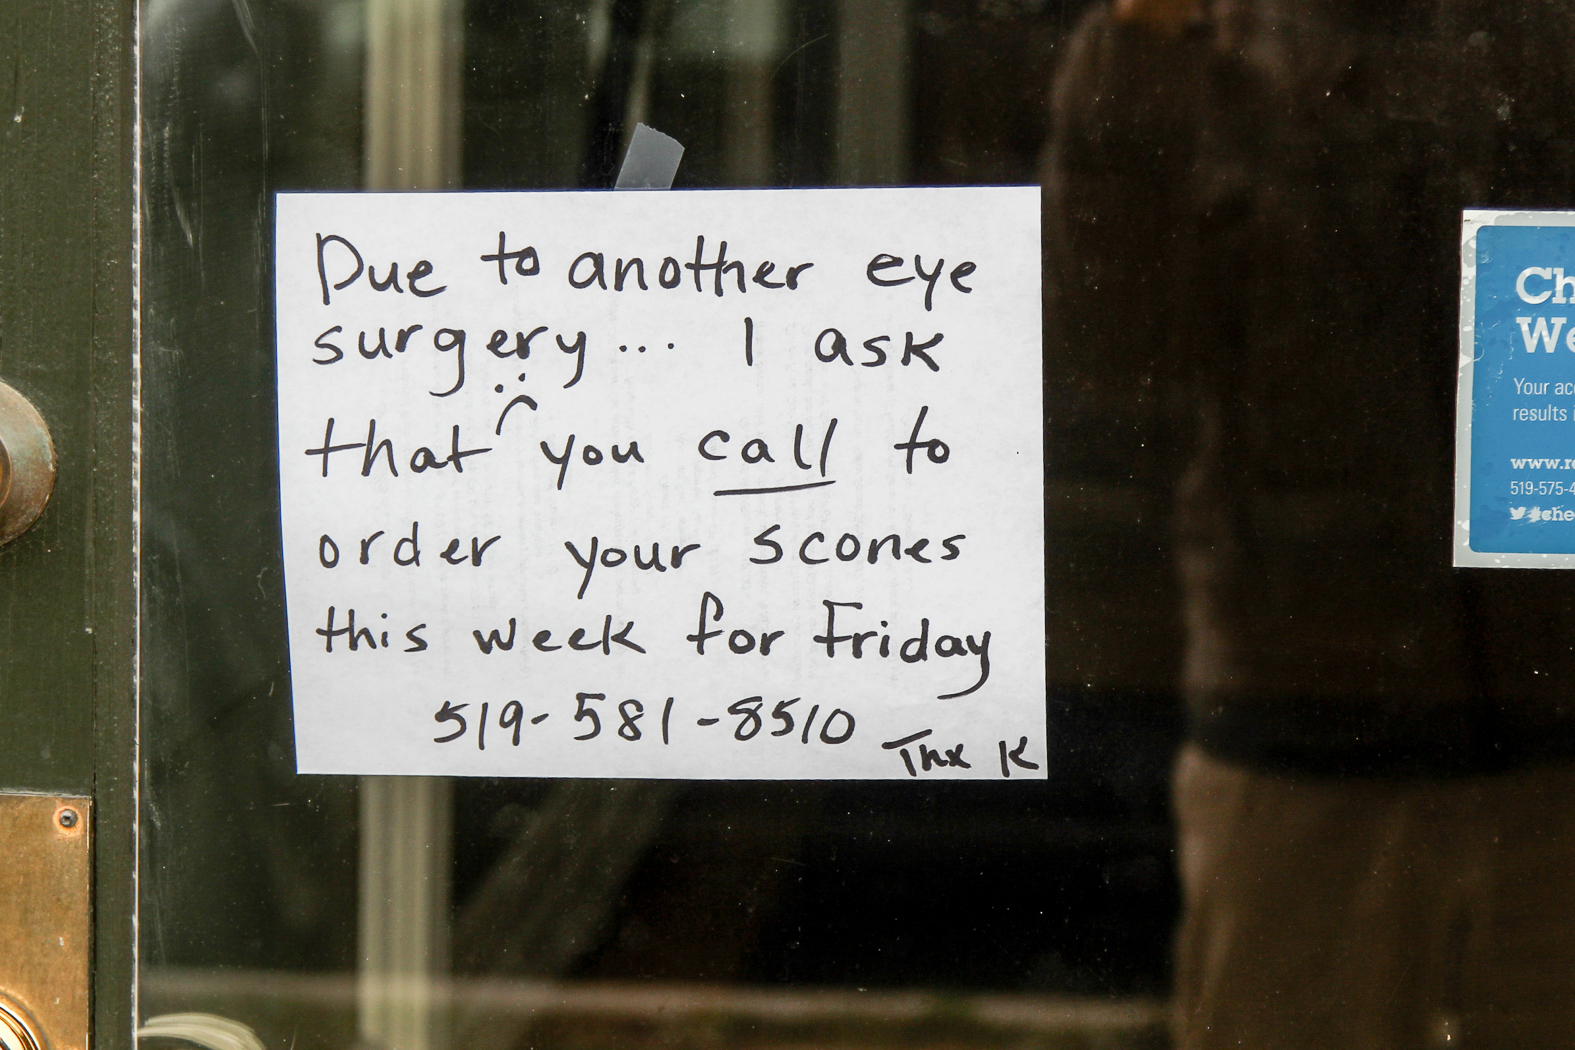 Due to another eye
surgery... I ask
that you call to
order your scones
this week for Friday
519-581-8510
Thx K
Ch
We
Your acc
results i
www.re
519-575-4
#che